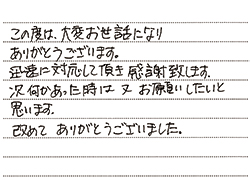 この度は、大変お世話になり
ありがとうございます。
迅速に対応して頂き感謝致します。
次何かあった時は又お願いしたいと
思います。
改めてありがとうございました。